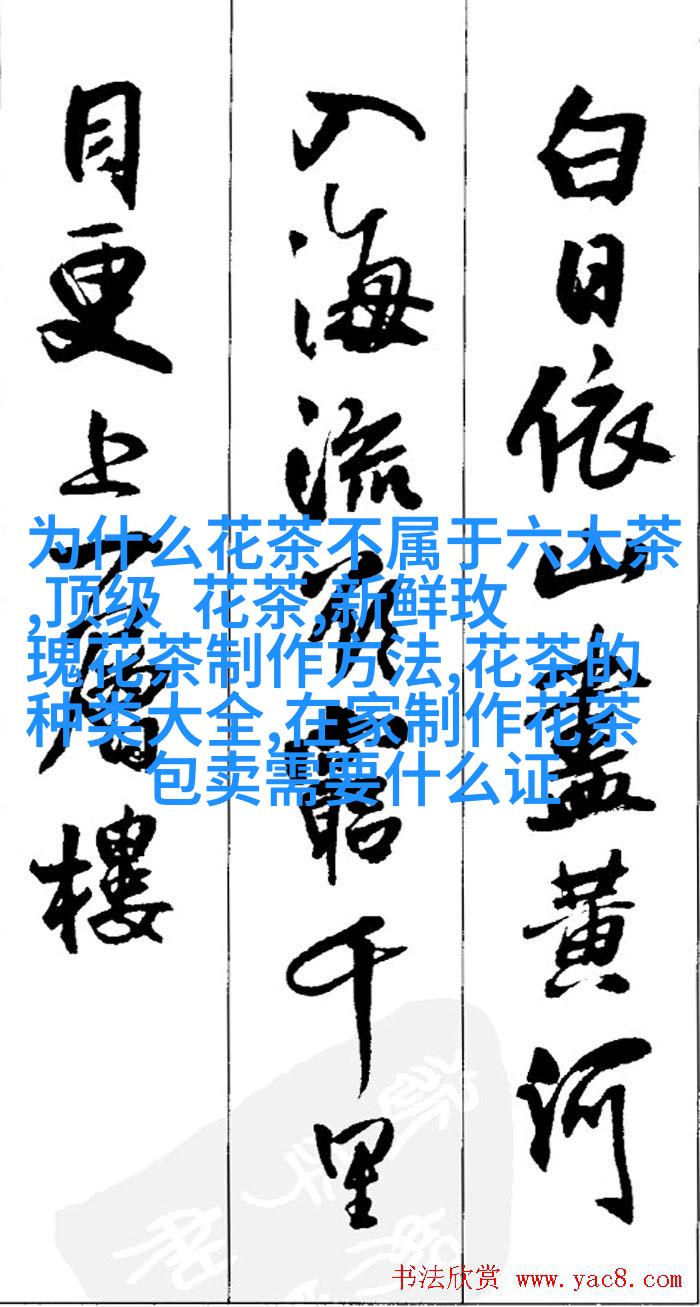 白日依山盡黃河
入海流欲窮千里
目更上一層樓
为什么花茶不属于六大茶
,顶级 花茶,新鲜玫
瑰花茶制作方法,花茶的
种类大全,在家制作花茶
包卖需要什么证
书法欣赏 www.yac8.com